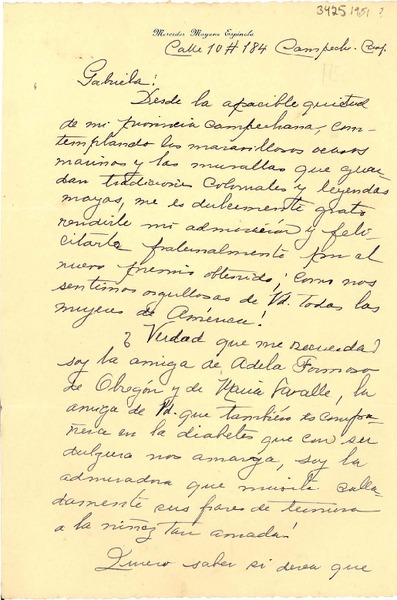 3425 1951 ?
Mercedes Mayans Espínola
Calle 10 # 184 Campeche. Camp.
Gabriela:
Desde la apacible quietud
de mi provincia campechana, con-
templando los maravillosos ocasos
marinos y las murallas que guar-
dan tradiciones coloniales y leyendas
mayas, me es dulcemente grato
rendirle mi admiración y feli-
citarte fraternalmente por el
nuevo premio obtenido; ¡como nos
sentimos orgullosas de Vd. todas las
mujeres de América!
¿Verdad que me recuerda?
soy la amiga de Adela Formoso
de Obregón y de María Lavalle, la
amiga de Vd. que también es compa-
ñera en la diabetes que con ser
dulzura nos amarga, soy la
admiradora que calla-
damente sus frases de ternura
a la niñez tan amada!
Quiero saber si desea que